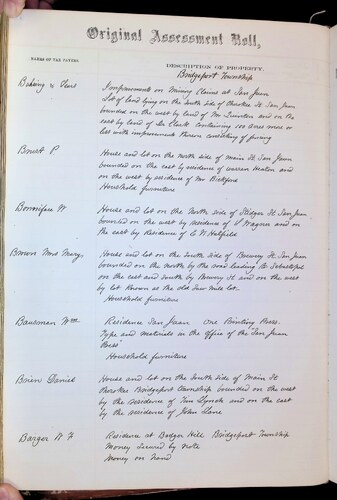 Original Assessment Roll,
NAMES OF TAX PAYERS.
DESCRIPTION OF PROPERTY.
Bridgeport Township
Improvements on Mining Claims at San Juan
Lot of land lying on the South Side of Cherokee St San Juan
bounded on the west by land of Mr and on the
east by land of Clark containing 100 acres more or
less with improvements thereon consisting of fencing
Brust P.
House and lot on the north side of Main St San Juan
bounded on the east by residence of Warren Heaton and
on the west by residence of Mr Bickford
Household furniture
House and lot on the North side of St San Juan
bounded on the west by residence of S Wagner and on
the east by Residence of C W Hatfield
Brown Mrs Mary
House and lot on the South side of Brewery St San Juan
bounded on the north by the road leading to Sebastopol
on the east and South by Brewery St and on the west
by lot known as the Old Saw Mill lot.
Household furniture
Bausman Wm
Residence San Juan One Printing Press.
Type and materials in the office of the "San Juan
Press"
Household furniture
Brien Daniel
House and lot on the South side of Main St
Cherokee Bridgeport Township bounded on the west
by the residence of Tim Lynch and on the east
by the residence of John Lane
Barger
Residence at Badger Hill Bridgeport Township
Money Secured by note
Money on hand